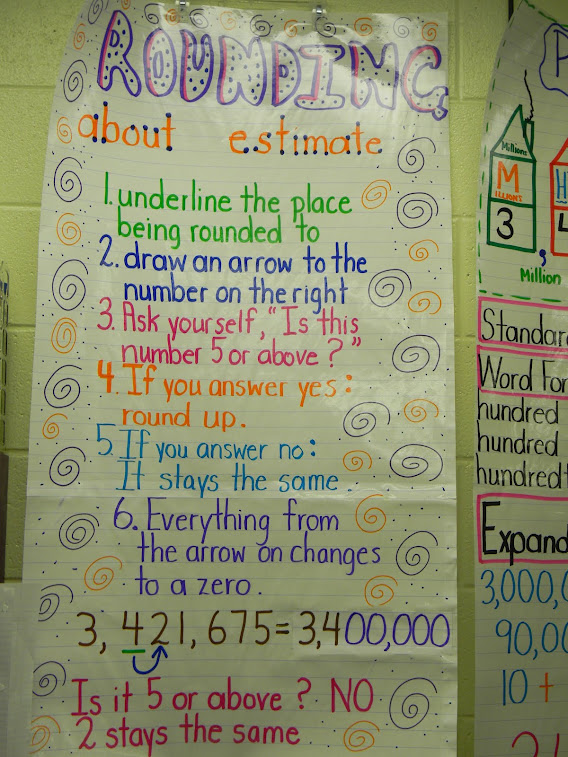 ROUNDING
about estimate
1. underline the place
being rounded to
2. draw an arrow to the
number on the right
3. Ask yourself, "Is this
number 5 or above?"
4. If you answer yes:
round up.
5. If you answer no:
It stays the same.
6. Everything from
the arrow on changes
to a zero.
3,421,675=3,400,000
Is it 5 or above? NO
2 stays the same
Millions
M
ILLIONS
3
,
Million
H
4
Standar
Word For
hundred
hundred
hundred
Expand
3,000,0
90,00
10 +